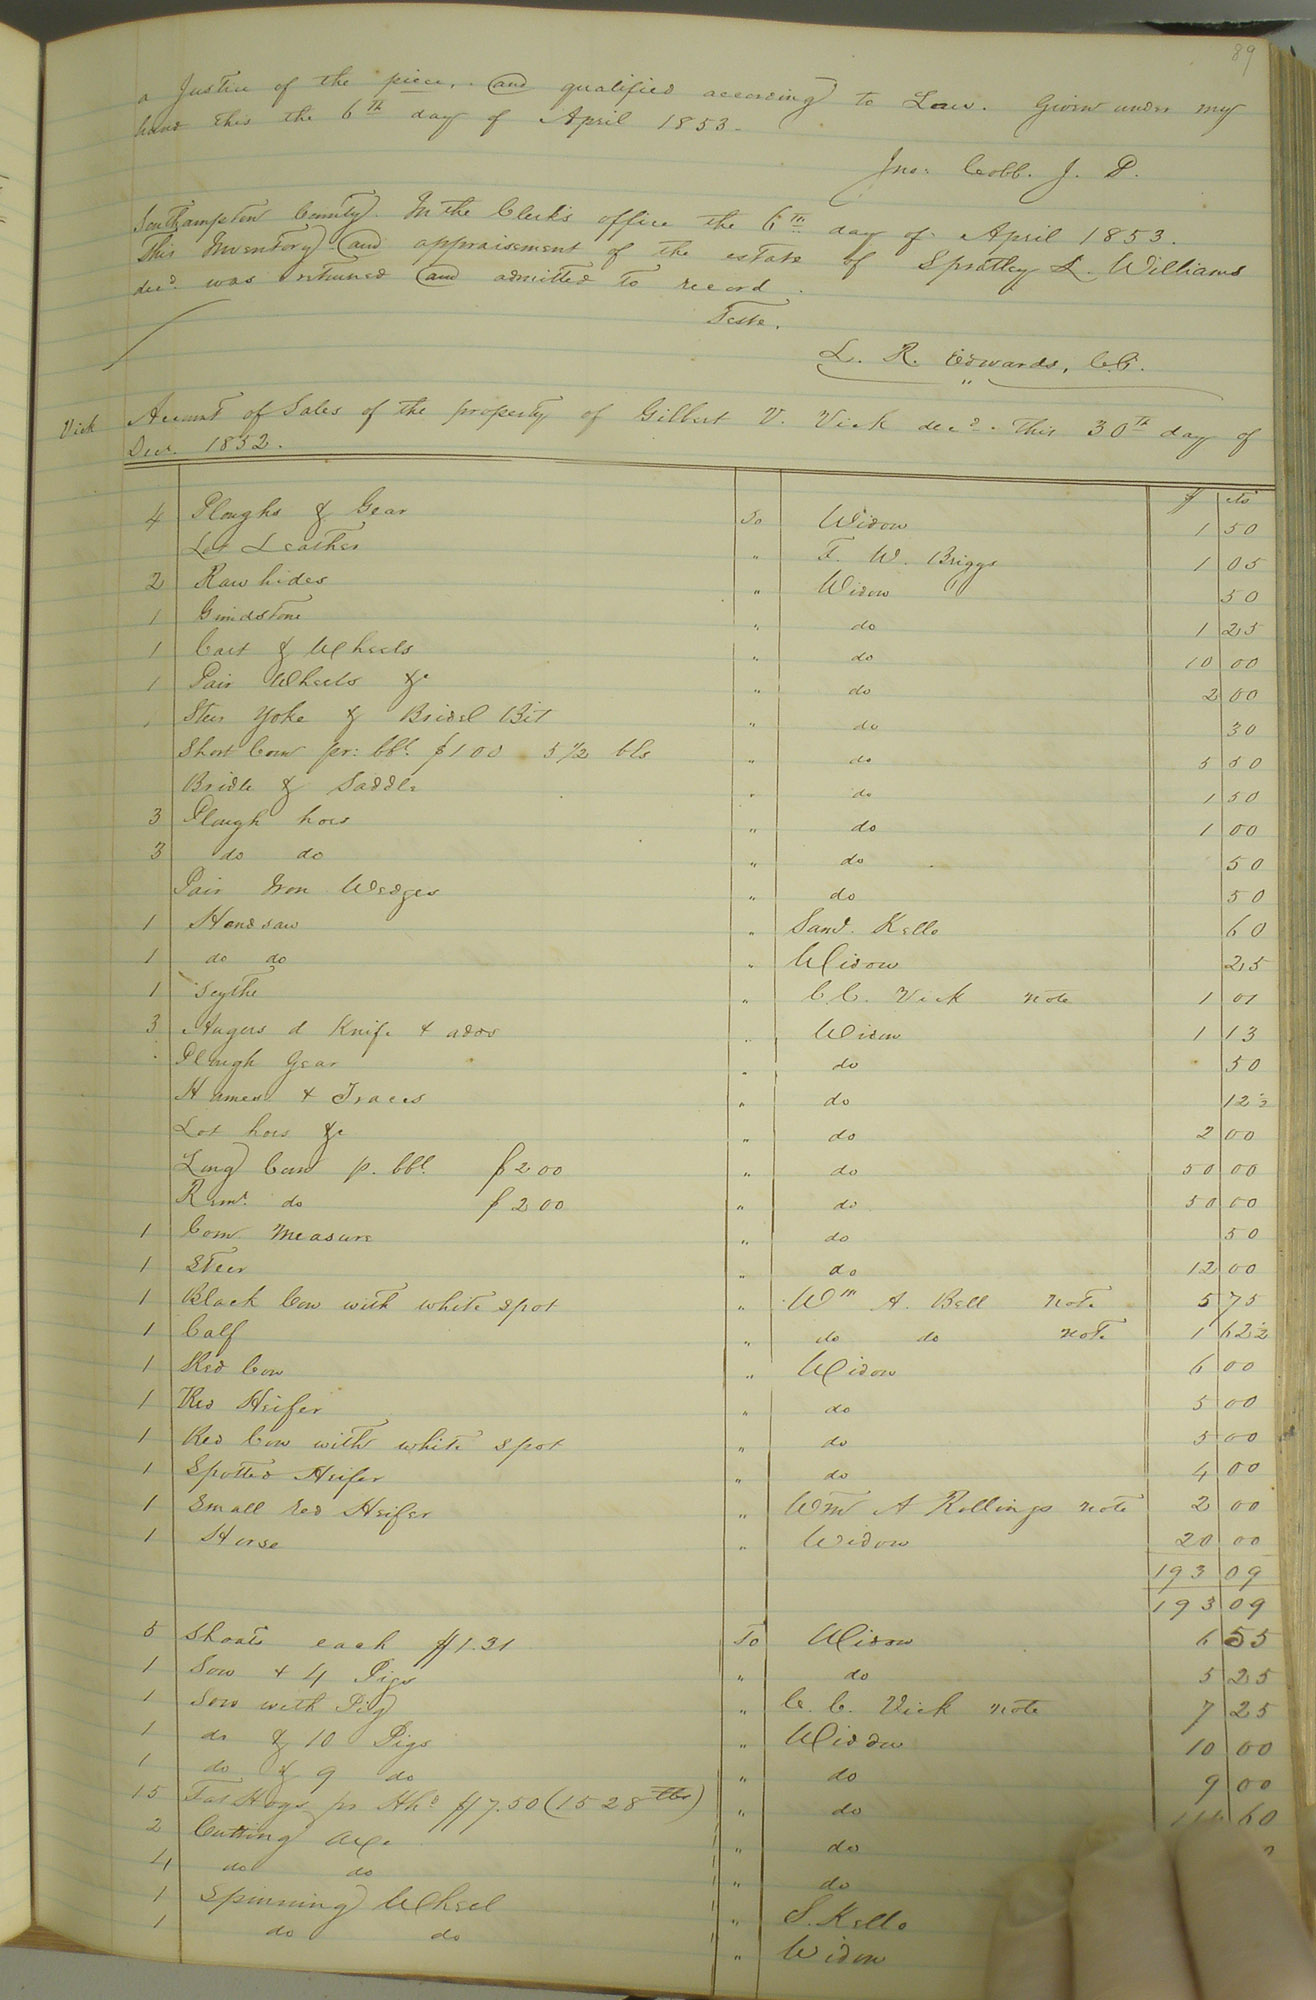 89
a Justice of the piece, and qualified according to Law. Given under my
hand this the 6th day of April 1853.
Jno: Cobb. J. P.
Southampton County. In the Clerk's office the 6th day of April 1853.
This Inventory and appraisement of the estate of Spratley L. Williams
decd. was returned and admitted to record.
Teste.
L. R. Edwards, C.C.
Vick Account of Sales of the property of Gilbert V. Vick decd. this 30th day of
Decr. 1852.
$ cts
4 Ploughs & Gear To Widow 1 50
Lot Leather " T. W. Briggs 1 05
2 Raw hides " Widow 50
1 Grindstone " do 1 25
1 Cart & Wheels " do 10 00
1 Pair Wheels &c " do 2 00
1 Steer Yoke & Bridel Bit " do 30
Short Corn pr: bbl. $1 00 5 1/2 bls " do 5 50
Bridle & Saddle " do 1 50
3 Plough hoes " do 1 00
3 do do " do 50
Pair Iron Wedges " do 50
1 Handsaw " Sand. Kello 60
1 do do " Widow 25
1 Scythe " C. C. Vick note 1 01
3 Augers d Knife & adds " Widow 1 13
Plough Gear " do 50
Hames & Traces " do 12 1/2
Lot hoes &c " do 2 00
Long Corn p. bbl. $2 00 " do 50 00
Remt. do $2 00 " do 50 00
1 Corn Measure " do 50
1 Steer " do 12 00
1 Black Cow with white spot " Wm A. Bell note 5 75
1 Calf " do do note 1 62 1/2
1 Red Cow " Widow 6 00
1 Red Heifer " do 5 00
1 Red Cow with white spot " do 5 00
1 Spotted Heifer " do 4 00
1 Small red Heifer " Wm A Rollings note 2 00
1 Horse " Widow 20 00
193 09
193 09
5 Shoats each $1.31 To Widow 6 55
1 Sow & 4 Pigs " do 5 25
1 Sow with Pig " C. C. Vick note 7 25
1 do & 10 Pigs " Widow 10 00
1 do & 9 do " do 9 00
15 Fat Hogs pr Hhd $7.50 (1528 lbs) " do 60
2 Cutting axe " do
4 do do " do
1 Spinning Wheel " S. Kello
1 do do " Widow